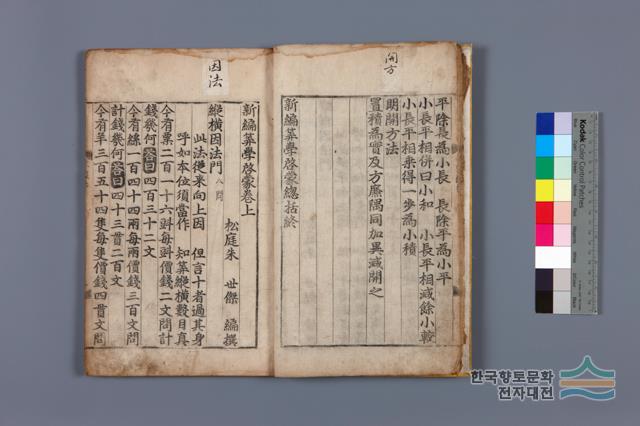 開方
平除長為小長　長除平為小平
小長平相併曰小和　小長平相減餘小較
小長平相乘得一步為小積
明開方法
置積為實及方廉隅同加異減開之
新編筭學啓蒙總括終
因法
新編筭學啓蒙卷上
松庭朱　世傑　編撰
縱橫因法門 八問
此法從來向上因　但言十者過其身
呼如本位須當作　知筭縱橫數目真
今有粟二百一十六㪷每㪷價錢二文問計
錢幾何答曰四百三十二文
今有絲一百四十四兩每兩價錢三百文問
計錢幾何答曰四十三貫二百文
今有羊三百五十四隻每隻價錢四貫文問
Kodak Color Control Patches
한국향토문화
전자대전